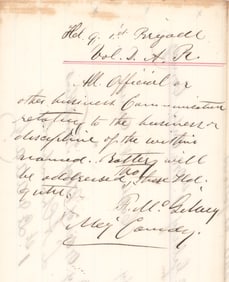 Hd q. 1st Brigade
Vol. S. A. R.
All Official or
other business Communication
relating to the business or
discipline of the within
named Battery will
be addressed thro these Hd.
qutrs.
R. Mc G
Maj Comdg.